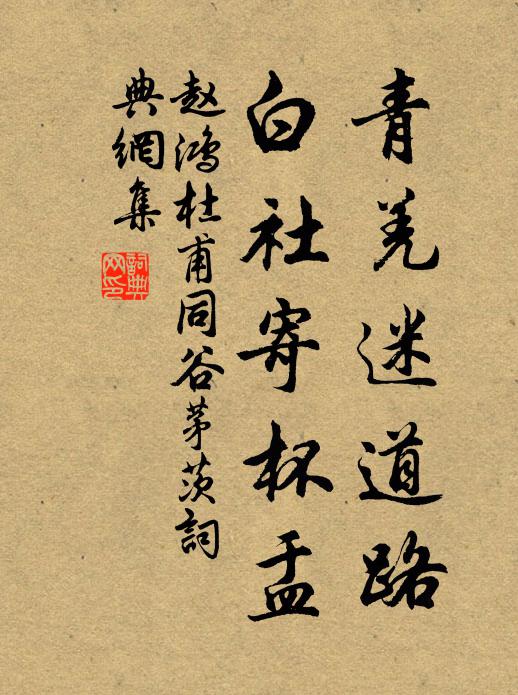 青羌迷道路
白社寄杯盂
赵鸿杜甫同谷茅茨詞
典網集
詞典網印